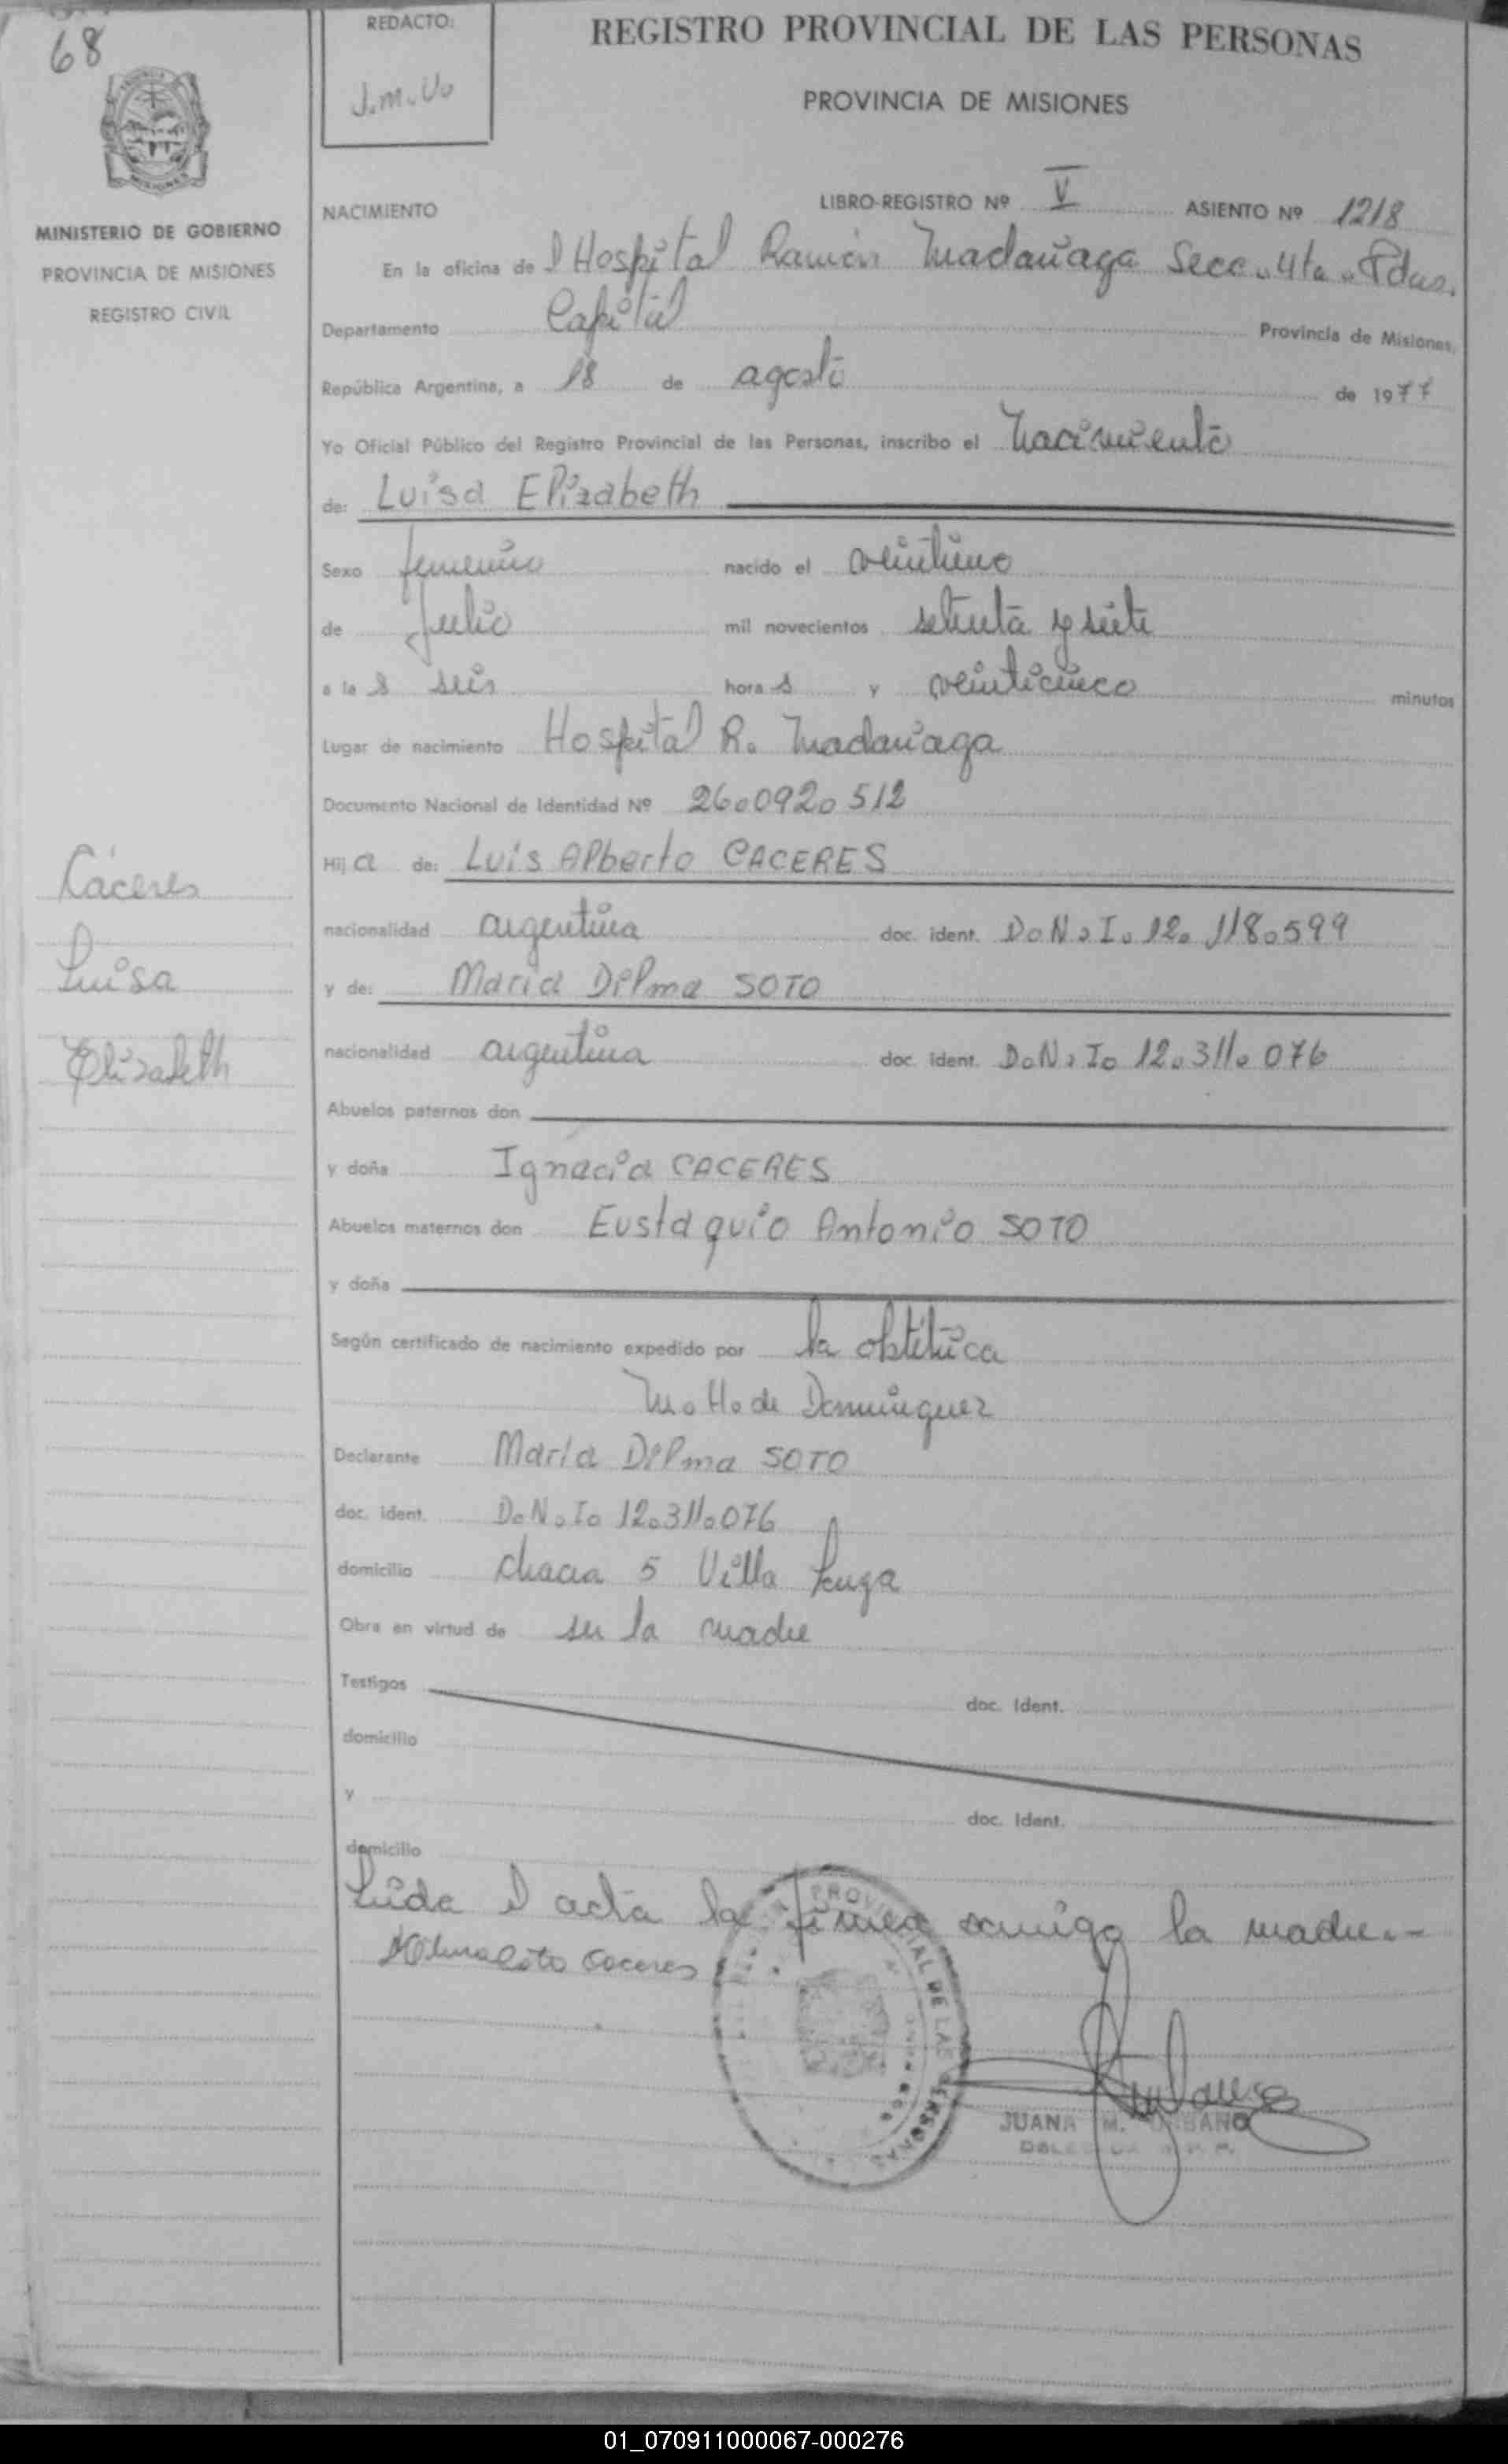 68
REDACTO:
J.M.Uo
REGISTRO PROVINCIAL DE LAS PERSONAS
PROVINCIA DE MISIONES
MISIONES
MINISTERIO DE GOBIERNO
PROVINCIA DE MISIONES
REGISTRO CIVIL
NACIMIENTO LIBRO-REGISTRO Nº V ASIENTO Nº 1218
En la oficina de l Hospital Ramón Madariaga Secc. 4ta. Pdas.
Departamento Capital Provincia de Misiones,
República Argentina, a 18 de agosto de 1977
Yo Oficial Público del Registro Provincial de las Personas, inscribo el nacimiento
de: Luisa Elizabeth
Sexo femenino nacido el veintiuno
de Julio mil novecientos setenta y siete
a la s seis hora s y veinticinco minutos
Lugar de nacimiento Hospital R. Madariaga
Documento Nacional de Identidad Nº 26.092.512
Hij a de: Luis Alberto CACERES
nacionalidad argentina doc. ident. D.N.I. 12.118.599
y de: Maria Dilma SOTO
nacionalidad argentina doc. ident. D.N.I. 12.311.076
Abuelos paternos don
y doña Ignacia CACERES
Abuelos maternos don Eustaquio Antonio SOTO
y doña
Según certificado de nacimiento expedido por la obstétrica
M. H. de Domínguez
Declarante Maria Dilma SOTO
doc. ident. D.N.I. 12.311.076
domicilio chacra 5 Villa Longa
Obra en virtud de ser la madre
Testigos doc. Ident.
domicilio
y doc. Ident.
domicilio
Leida el acta la firma conmigo la madre.-
Cáceres
Luisa
Elizabeth
PROVINCIAL DE LAS PERSONAS
JUANA M. URBANO
01_070911000067-000276